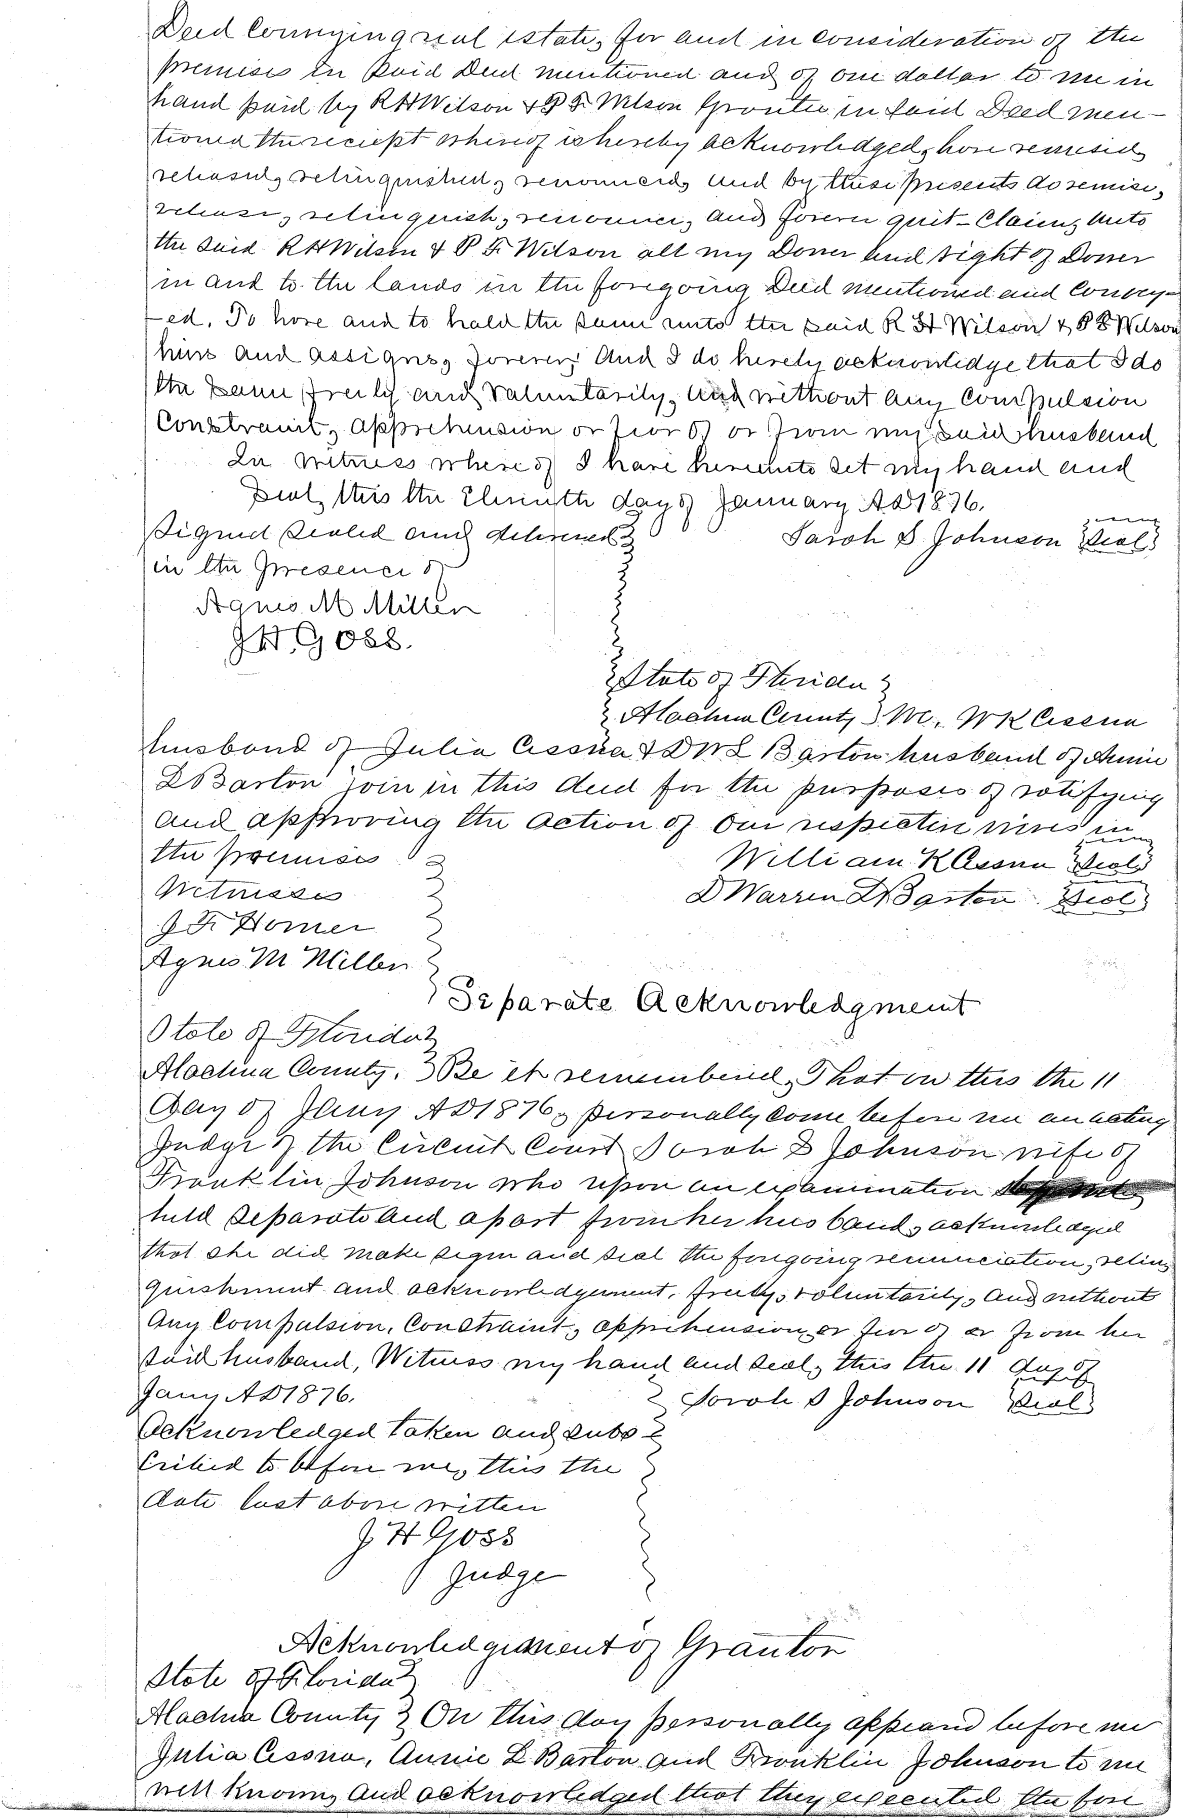 Deed Conveying real estate, for and in consideration of the
premises in said Deed mentioned and of one dollar to me in
hand paid by R H Wilson & P F Wilson Grantee in said Deed men-
tioned the reciept whereof is hereby acknowledged, have remised,
released, relinquished, renounced, and by these presents do remise,
release, relinquish, renounce, and forever quit-Claim, unto
the said R H Wilson & P F Wilson all my Dower and right of Dower
in and to the lands in the foregoing Deed mentioned and Convey-
-ed. To have and to hold the same unto the said R H Wilson & P F Wilson
heirs and assigns, forever, And I do hereby acknowledge that I do
the same, freely and Valuntarily, and without any Compulsion
Constraint, apprehension or fear of or from my said husband
In witness where of I have hereunto set my hand and
Seal, this the Eleventh day of January AD 1876.
Signed Sealed and delivered
in the presence of
Sarah S Johnson Seal
Agnes M Miller
J H Goss.
State of Florida
Alachua County We, W K Cessna
husband of Julia Cessna & D W L Barton husband of Annie
L Barton join in this deed for the purposes of ratifying
and approving the action of our respective wives in
the premises
William K Cessna Seal
Witnesses
D Warren L Barton Seal
J F Homer
Agnes M Miller
Separate Acknowledgment
State of Florida
Alachua County. Be it remembered, That on this the 11
Day of Jany AD 1876, personally come before me an acting
Judge of the Circuit Court Sarah S Johnson wife of
Franklin Johnson who upon an examination
held separate and apart from her husband, acknowledged
that she did make sign and seal the foregoing renunciation, relin
quishment and acknowledgement, freely, voluntarily, and without
Any Compulsion, Constraint, apprehension or fear of or from her
said husband, Witness my hand and seal, this the 11 day of
Jany AD 1876.
Sarah S Johnson Seal
Acknowledged taken and subs
cribed to before me, this the
date last above written
J H Goss
Judge
Acknowledgement of Grantor
State of Florida
Alachua County On this day personally appeard before me
Julia Cessna, Annie L Barton and Franklin Johnson to me
well known, and acknowledged that they executed the fore